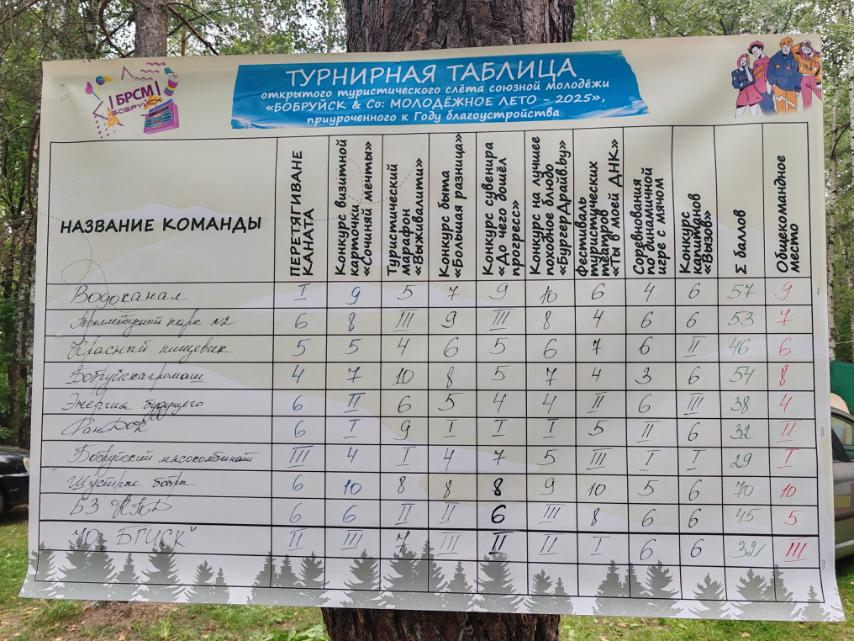 БРСМ
БОБРУЙСК
ТУРНИРНАЯ ТАБЛИЦА
открытого туристического слёта союзной молодёжи
«БОБРУЙСК & Co: МОЛОДЁЖНОЕ ЛЕТО - 2025»,
приуроченного к Году благоустройства
НАЗВАНИЕ КОМАНДЫ
ПЕРЕТЯГИВАНЕ
КАНАТА
Конкурс визитной
карточки
«Сочиняй мечты»
Туристический
марафон
«Выживалити»
Конкурс быта
«Большая разница»
Конкурс сувенира
«До чего дошёл
прогресс»
Конкурс на лучшее
походное блюдо
«БургерДрайв.by»
Фестиваль
туристических
театров
«Ты в моей ДНК»
Соревнования
по динамичной
игре с мячом
Конкурс
капитанов
«Вызов»
Σ баллов
Общекомандное
место
Водоканал I 9 5 7 9 10 6 4 6 57 9
Троллейбусный парк №2 6 8 III 9 III 8 4 6 6 53 7
Красный пищевик 5 5 4 6 5 6 7 6 II 46 6
Бобруйскагромаш 4 7 10 8 5 7 4 3 6 54 8
Энергия будущего 6 II 6 5 4 4 II 6 III 38 4
ФанДОК 6 I 9 I I I 5 II 6 32 II
Бобруйский мясокомбинат III 4 I 4 7 5 III I I 29 I
Шустрые бобры 6 10 8 8 8 9 10 5 6 70 10
БЗ 6 6 II II 6 III 8 6 6 45 5
"УО БГИСК" II III 7 III II II I 6 6 32 III